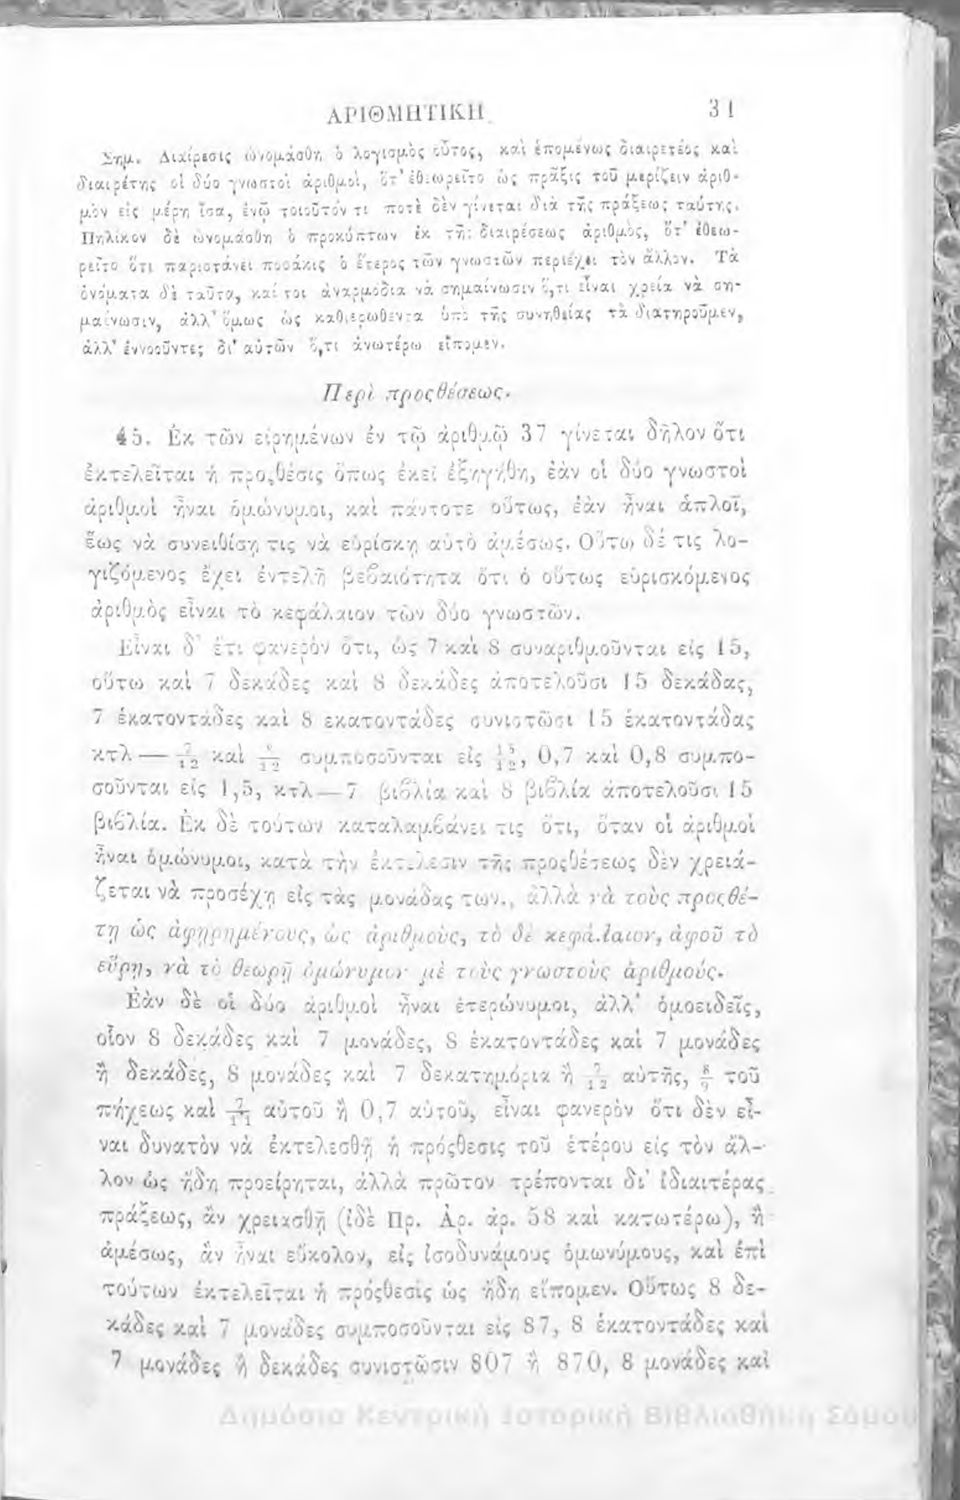 ΑΡΙΘΜΗΤΙΚΗ. 31
Σημ. Διαίρεσις ὠνομάσθη ὁ λογισμὸς οὗτος, καὶ ἑπομένως διαιρετέος καὶ
διαιρέτης οἱ δύο γνωστοὶ ἀριθμοὶ, ὅτ' ἐθεωρεῖτο ὡς πρᾶξις τοῦ μερίζειν ἀριθ-
μὸν εἰς μέρη ἴσα, ἐνῷ τοιοῦτόν τι ποτὲ δὲν γίνεται διὰ τῆς πράξεως ταύτης.
Πηλίκον δὲ ὠνομάσθη ὁ προκύπτων ἐκ τῆς διαιρέσεως ἀριθμὸς, ὅτ' ἐθεω-
ρεῖτο ὅτι παριστάνει ποσάκις ὁ ἕτερος τῶν γνωστῶν περιέχει τὸν ἄλλον. Τὰ
ὀνόματα δὲ ταῦτα, καί τοι ἀναρμόδια νὰ σημαίνωσιν ὅ,τι εἶναι χρεία νὰ ση-
μαίνωσιν, ἀλλ' ὅμως ὡς καθιερωθέντα ὑπὸ τῆς συνηθείας τὰ διατηροῦμεν,
ἀλλ' ἐννοοῦντες δι' αὐτῶν ὅ,τι ἀνωτέρω εἴπομεν.
Περὶ προςθέσεως.
45. Ἐκ τῶν εἰρημένων ἐν τῷ ἀριθμῷ 37 γίνεται δῆλον ὅτι
ἐκτελεῖται ἡ προςθέσις ὅπως ἐκεῖ ἐξηγήθη, ἐὰν οἱ δύο γνωστοὶ
ἀριθμοὶ ἦναι ὁμώνυμοι, καὶ πάντοτε οὕτως, ἐὰν ἦναι ἁπλοῖ,
ἕως νὰ συνειθίσῃ τις νὰ εὑρίσκῃ αὐτὸ ἀμέσως. Οὕτω δέ τις λο-
γιζόμενος ἔχει ἐντελῆ βεβαιότητα ὅτι ὁ οὕτως εὑρισκόμενος
ἀριθμὸς εἶναι τὸ κεφάλαιον τῶν δύο γνωστῶν.
Εἶναι δ' ἔτι φανερὸν ὅτι, ὡς 7 καὶ 8 συναριθμοῦνται εἰς 15,
οὕτω καὶ 7 δεκάδες καὶ 8 δεκάδες ἀποτελοῦσι 15 δεκάδας,
7 ἑκατοντάδες καὶ 8 εκατοντάδες συνιστῶσι 15 ἑκατοντάδας
κτλ — 7/12 καὶ 8/12 συμποσοῦνται εἰς 15/12, 0,7 καὶ 0,8 συμπο-
σοῦνται εἰς 1,5, κτλ — 7 βιβλία καὶ 8 βιβλία ἀποτελοῦσι 15
βιβλία. Ἐκ δὲ τούτων καταλαμβάνει τις ὅτι, ὅταν οἱ ἀριθμοὶ
ἦναι ὁμώνυμοι, κατὰ τὴν ἐκτέλεσιν τῆς προςθέσεως δὲν χρειά-
ζεται νὰ προσέχῃ εἰς τὰς μονάδας των., ἀλλὰ νὰ τοὺς προςθέ-
τῃ ὡς ἀφῃρημένους, ὡς ἀριθμοὺς, τὸ δὲ κεφάλαιον, ἀφοῦ τὸ
εὕρῃ, νὰ τὸ θεωρῇ ὁμώνυμον μὲ τοὺς γνωστοὺς ἀριθμούς.
Ἐὰν δὲ οἱ δύο ἀριθμοὶ ἦναι ἑτερώνυμοι, ἀλλ' ὁμοειδεῖς,
οἷον 8 δεκάδες καὶ 7 μονάδες, 8 ἑκατοντάδες καὶ 7 μονάδες
ἢ δεκάδες, 8 μονάδες καὶ 7 δεκατημόρια ἢ 7/12 αὐτῆς, τοῦ
πήχεως καὶ 7/11 αὐτοῦ ἢ 0,7 αὐτοῦ, εἶναι φανερὸν ὅτι δὲν εἶ-
ναι δυνατὸν νὰ ἐκτελεσθῇ ἡ πρόςθεσις τοῦ ἑτέρου εἰς τὸν ἄλ-
λον ὡς ἤδη προείρηται, ἀλλὰ πρῶτον τρέπονται δι' ἰδιαιτέρας
πράξεως, ἂν χρειασθῇ (ἰδὲ Πρ. Ἀρ. ἀρ. 58 καὶ κατωτέρω), ἢ
ἀμέσως, ἂν ἦναι εὔκολον, εἰς ἰσοδυνάμους ὁμωνύμους, καὶ ἐπὶ
τούτων ἐκτελεῖται ἡ πρόςθεσις ὡς ἤδη εἴπομεν. Οὕτως 8 δε-
κάδες καὶ 7 μονάδες συμποσοῦνται εἰς 87, 8 ἑκατοντάδες καὶ
7 μονάδες ἢ δεκάδες συνιστῶσιν 807 ἢ 870, 8 μονάδες καὶ
Δημόσια Κεντρική Ιστορική Βιβλιοθήκη Σάμου